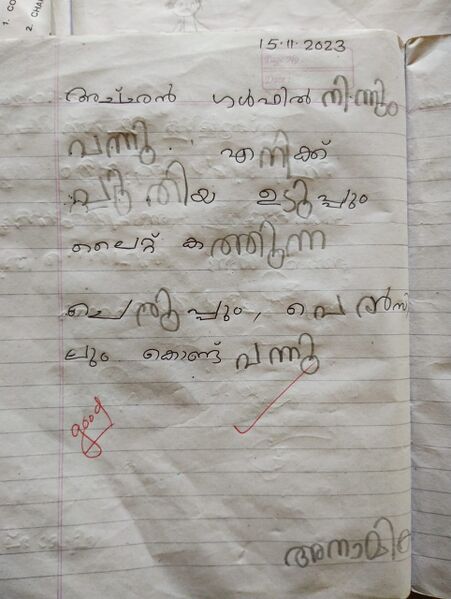 1. CO
2. CHA
15.11.2023
Page No
Date
അച്ഛൻ ഗൾഫിൽ നിന്നും
വന്നു. എനിക്ക്
പുതിയ ഉടുപ്പും
ലൈറ്റ് കത്തുന്ന
ചെരുപ്പും, പെൻസി
ലും കൊണ്ട് വന്നു
good
അനാമിക